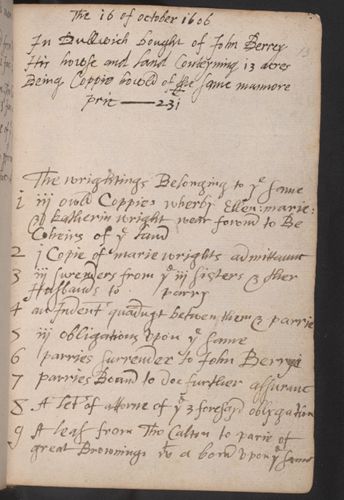 The 16 of october 1606
In Dullwich bought of John Berrey
His howse and land Conteyning 13 acres
Being Coppie howld of the same mannore
pric —— 231
The wrightings Belonging to yᵉ same
1 iij owld Coppies wherby Ellen: marie:
& katherin wright wear fownd to Be
Coheirs of yᵉ land
2 j Copie of marie wrights admittaunc
3 iij surenders from yᵉ iij sisters & ther
Hosbands to parry
4 an Indent quadrupt betwen them & parrie
5 iij obligations vpon yᵉ same
6 parries surrender to John Berry
7 parries Bound to doe further assuranc
8 A letᵗ of attorne of yᵉ 3 foresayd obligation
9 A leas from Tho Calton to parie of
great Brownings wᵗ a bond vpon yᵉ same